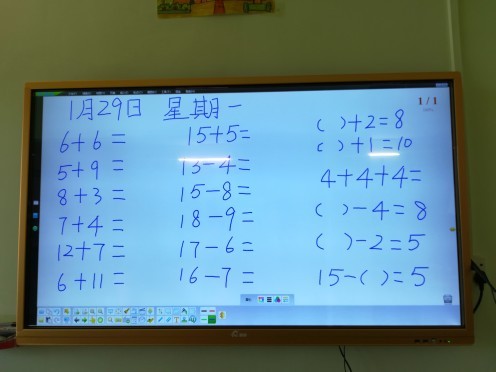 1月29日 星期一
1/1
6+6=
5+9=
8+3=
7+4=
12+7=
6+11=
15+5=
13-4=
15-8=
18-9=
17-6=
16-7=
( )+2=8
( )+1=10
4+4+4=
( )-4=8
( )-2=5
15-( )=5